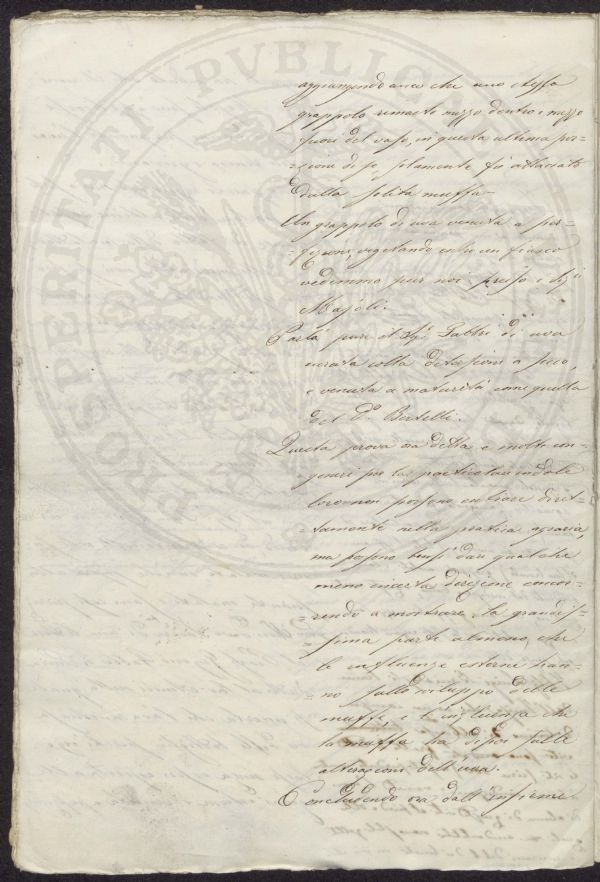 PROSPERITATI PVBLICAE
aggiungendo anco che uno stesso
grappolo rimasto mezzo dentro e mezzo
fuori del vaso, in questa ultima por-
-zione di se solamente fù attaccato
dalla solita muffa.
Un grappolo di uva venuta a per-
-fezione vegetando entro un fiasco
vedemmo pur noi presso i Sigi
Majoli.
Parlò pure il Sigr Fabbri di uva
curata colla detersione a secco,
e venuta a maturità come quella
del Dr Bertelli.
Questa prova ora detta e molte con-
-generi per la particolare indole
loro non possono entrare diret-
-tamente nella pratica agraria,
ma possono bensì dare qualche
meno incerta direzione concor-
-rendo a mostrare la grandis-
-sima parte almeno, che
le influenze esterne han-
-no sullo sviluppo delle
muffe, e l'influenza che
la muffa ha di poi sulle
alterazioni dell'uva.
Concludendo ora dall'insieme